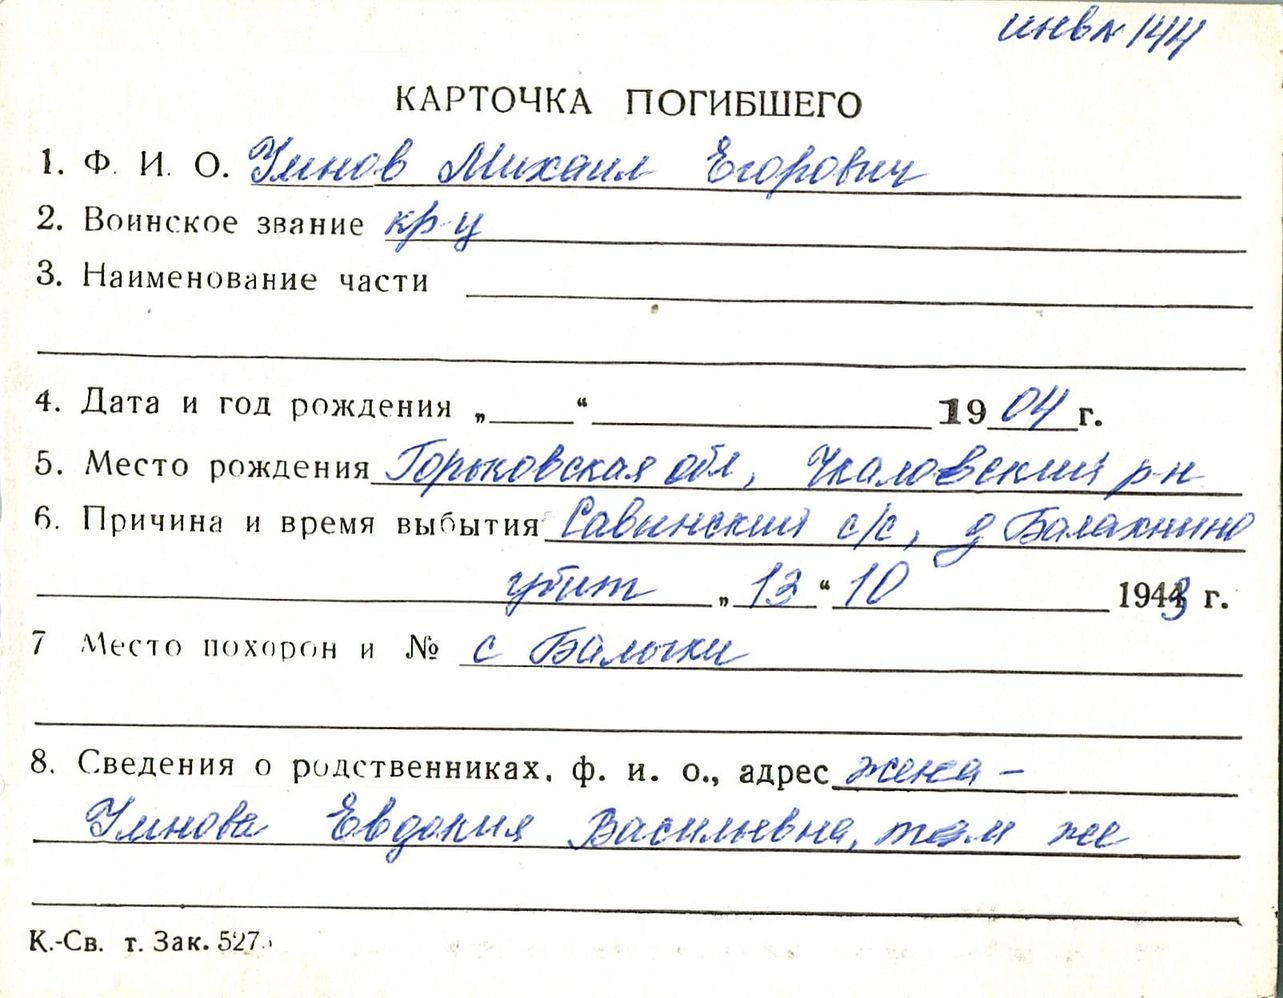 инв № 144
КАРТОЧКА ПОГИБШЕГО
1. Ф. И. О. Умнов Михаил Егорович
2. Воинское звание кр-ц
3. Наименование части
4. Дата и год рождения „ “ 1904 г.
5. Место рождения Горьковская обл, Чкаловский р-н
6. Причина и время выбытия Савинский с/с, д Балахнино
убит „ 13 “ 10 1943 г.
7 Место похорон и № с Балычки
8. Сведения о родственниках, ф. и. о., адрес жена –
Умнова Евдокия Васильевна, там же
К.-Св. т. Зак. 527